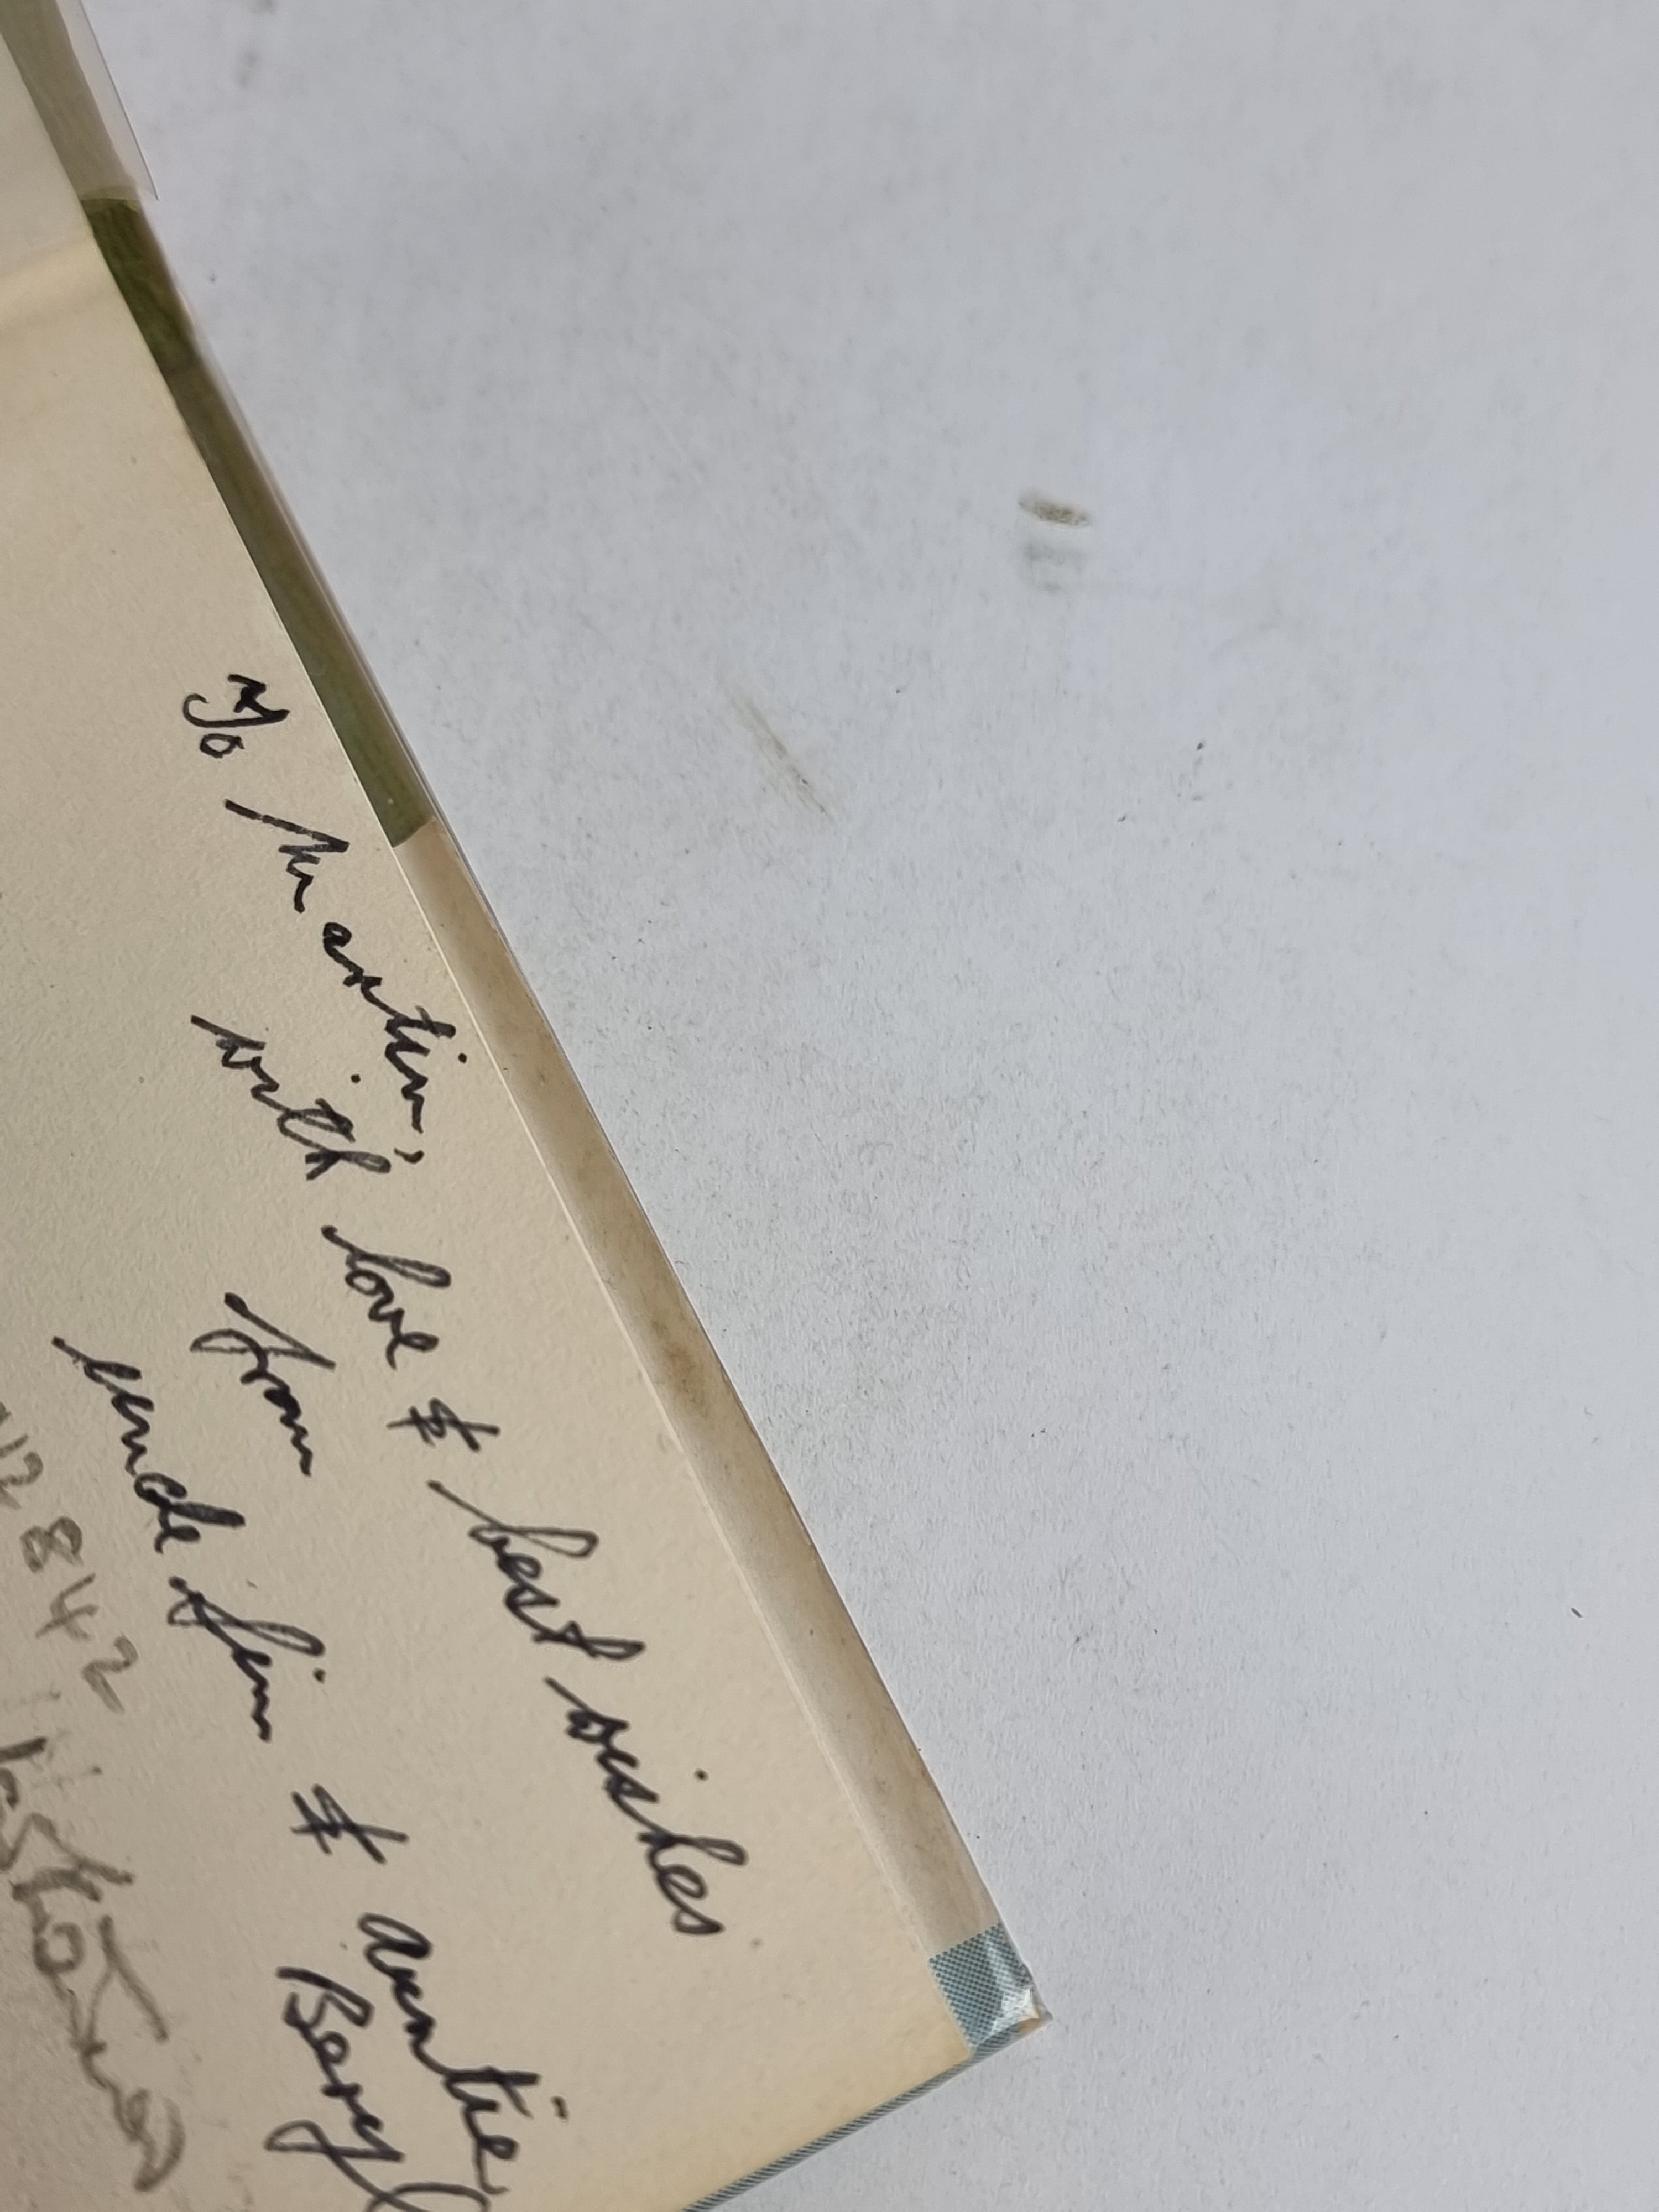 To Martin,
with love & best wishes
from
uncle Jim & auntie
Beryl
12842